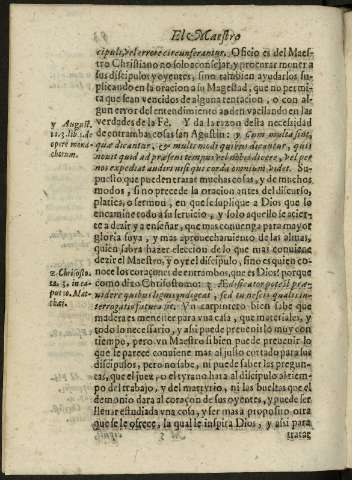 El Maestro
cipulo, vel errore circunferantur. Oficio es del Maes-
tro Christiano no solo aconsejar, y procurar mouer a
sus discipulos y oyentes, sino tambien ayudarlos su-
plicando en la oracion a su Magestad, que no permi-
ta que sean vencidos de alguna tentacion, o con al-
gun error del entendimiento anden vacilando en las
verdades de la Fè. Y da la razon desta necesidad
y August.
to. 3. lib. 1. de
opere mona-
chorum.
de entrambas cosas san Agustin: y Cum multa sint,
quæ dicantur, & multi modi quibus dicantur, quis
nouit quid ad præsens tempus vel nobis dicere, vel per
nos expediat audiri nisi qui corda omnium videt. Su-
puesto que pueden tratar muchas cosas, y de muchos
modos, si no precede la oracion antes del discurso,
platica, o sermon, en que se suplique a Dios que lo
encamine todo a su seruicio, y solo aquello se acier-
te a dezir y a enseñar, que mas conuenga para mayor
gloria suya, y mas aprouechamiento de las almas,
quien sabra hazer eleccion de lo que mas conuiene
dezir el Maestro, y oyr el discipulo, sino es quien co-
z Chrisosto.
in ca-
Mat-
thæi.
noce los coraçones de entrambos, que es Dios? porque
como dixo Chrisostomo: z Ædificator potest præ-
uidere quibus lignis indiget, sed tu nescis qualis in-
terrogatio futura sit. Vn carpintero bien sabe que
madera es menester para vna casa, que materiales, y
todo lo necessario, y asi puede preuenirlo muy con
tiempo, pero vn Maestro si bien puede preuenir lo
que le parece conuiene mas al justo cortado para sus
discipulos, pero no sabe, ni puede saber las pregun-
tas, que el juez, o el tyrano hara al discipulo al tiem-
po del trabajo, y del martyrio, ni las bueltas que el
demonio dara al coraçon de sus oyentes, y puede ser
lleuar estudiada vna cosa, y ser mas a proposito otra
que se le ofrece, la qual le inspira Dios, y asi para
tratar